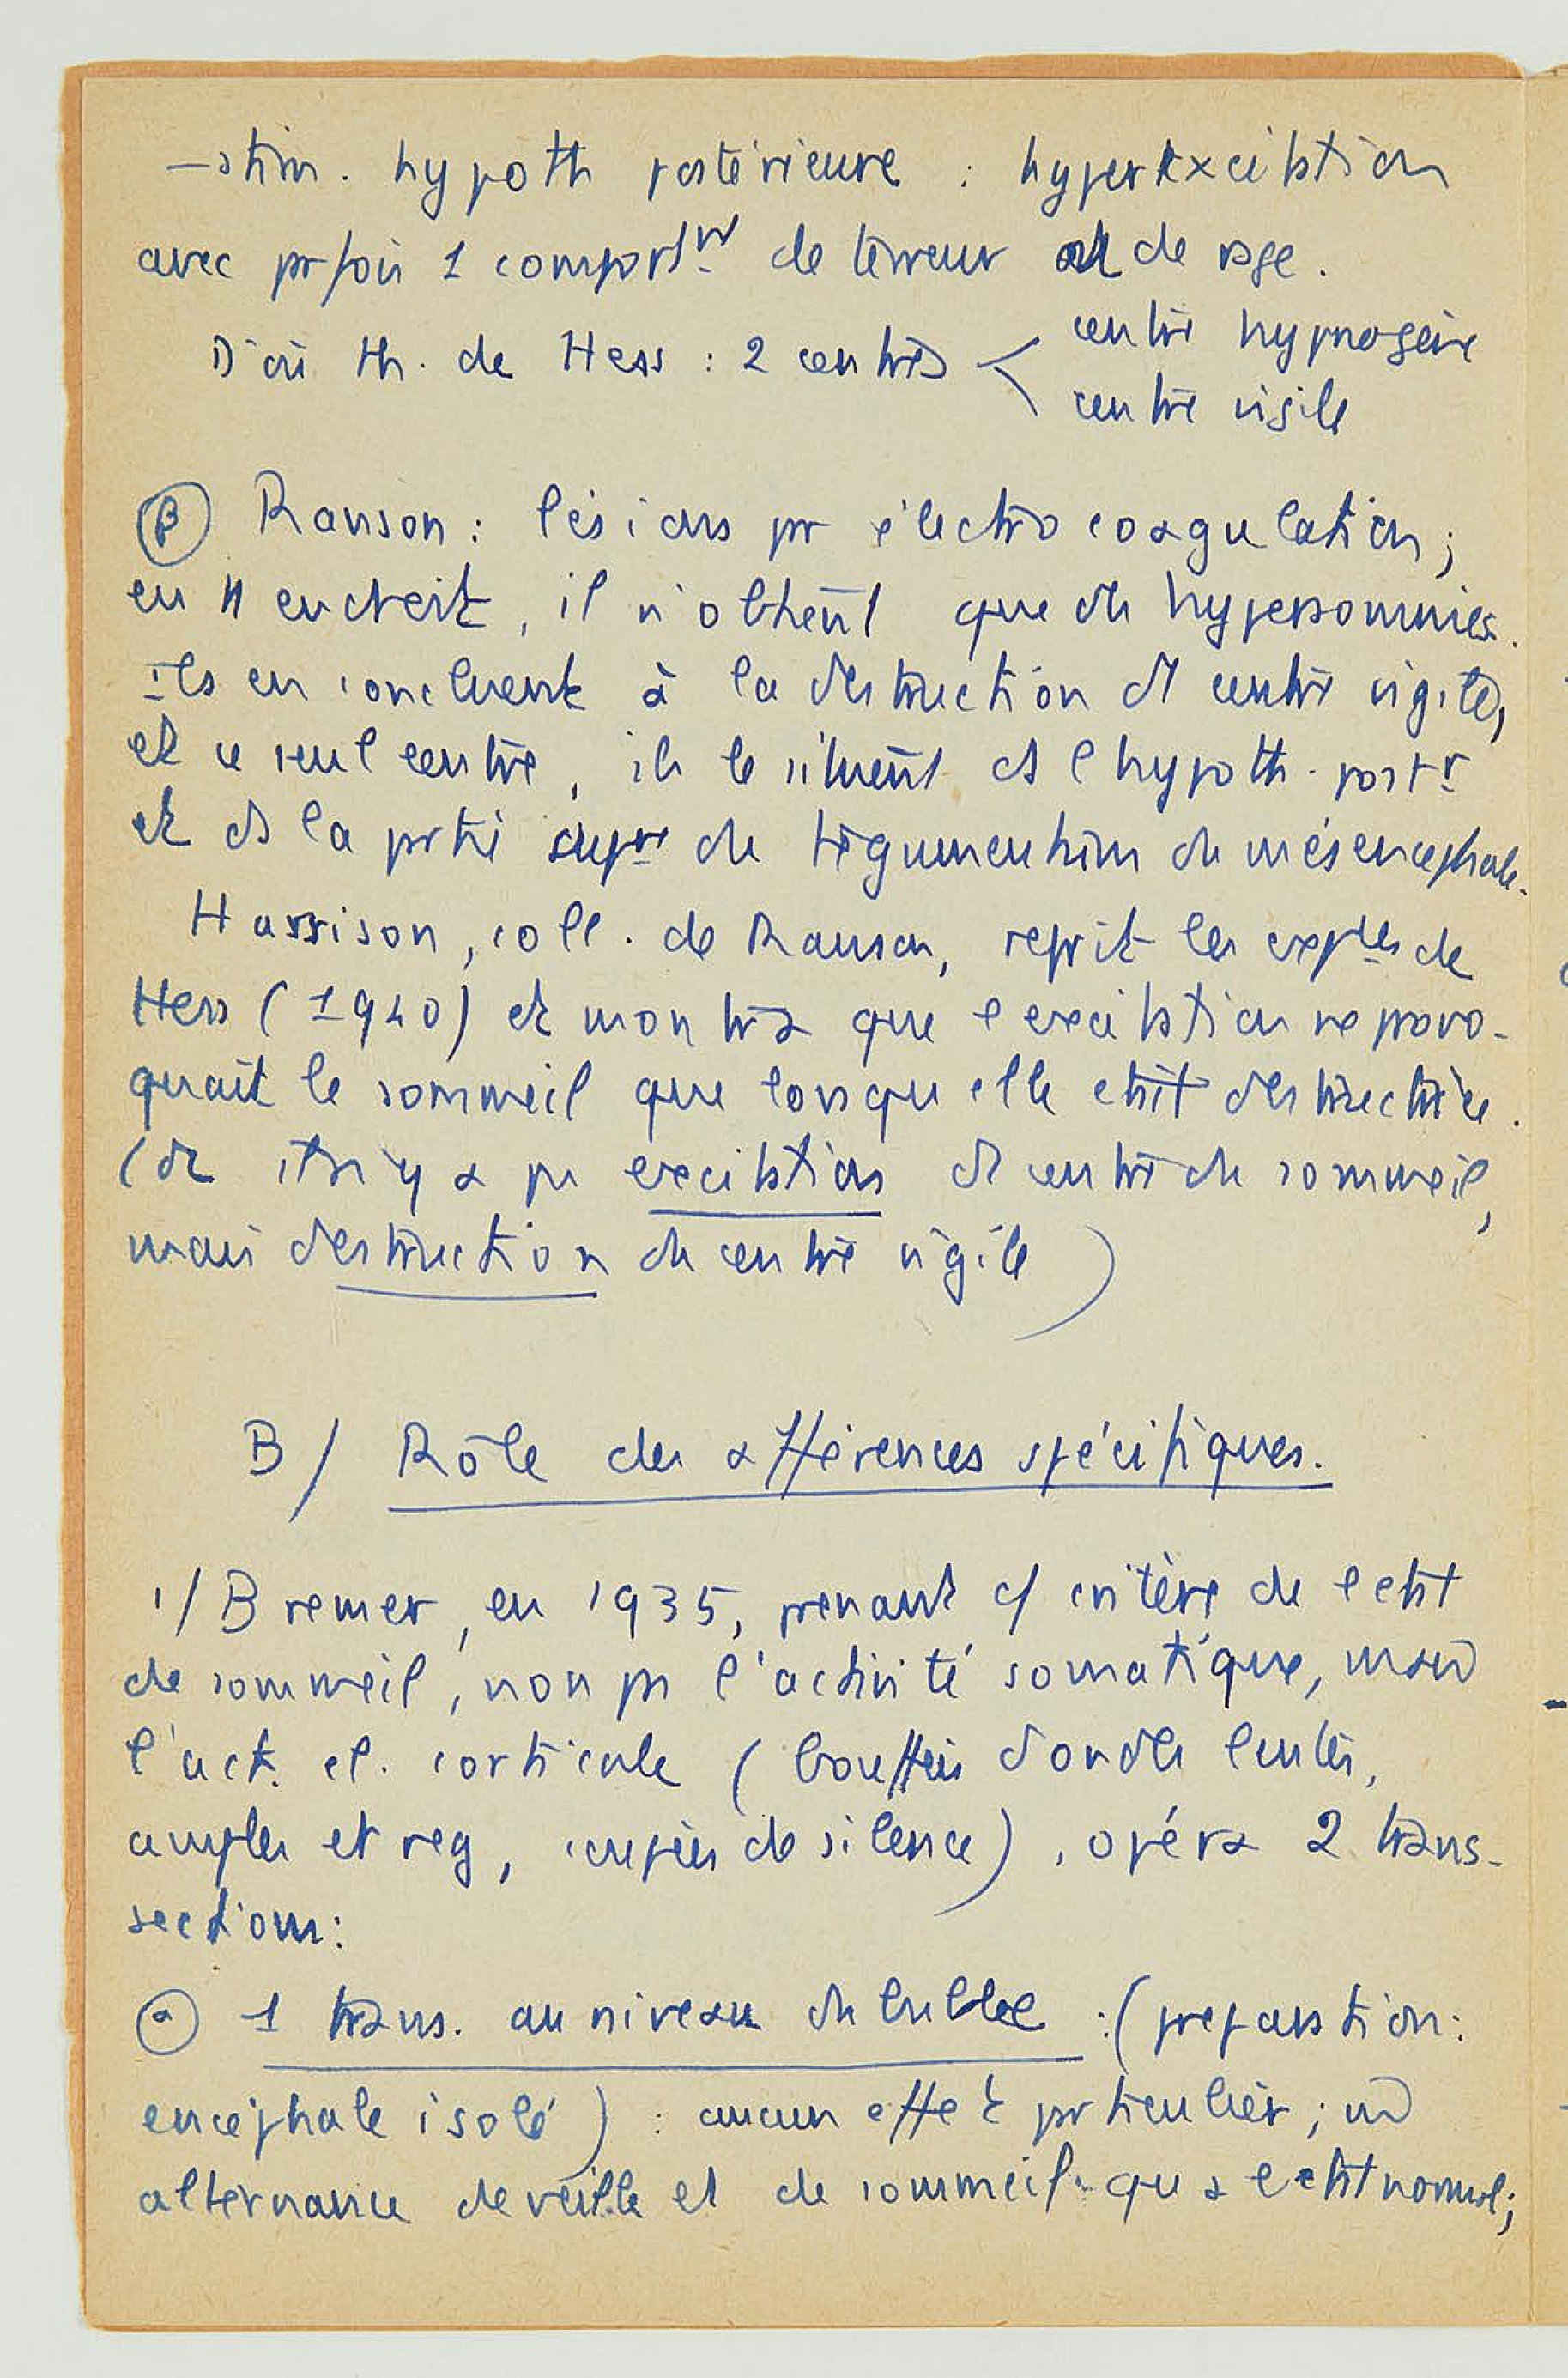 — stim. hypoth postérieure : hyperexcitation
avec prfois 1 comportt de terreur ou de rage.
D'où th. de Hess : 2 centres < centre hypnogène
centre vigile
β Ranson : lésions pr électrocoagulation ;
en 11 endroits, il n'obtient que des hypersomnies.
ils en concluent à la destruction d centre vigile,
et ce seul centre, ils le situent ds l'hypoth. postr
et ds la prtie supre du tégumentum du mésencéphale.
Harrison, coll. de Ranson, reprit les exples de
Hess (1940) et montra que l'excitation ne provo-
quait le sommeil que lorsqu'elle était destructrice.
( il n'y a ps excitation d centre du sommeil,
mais destruction du centre vigile )
B / Rôle des afférences spécifiques.
1/ Bremer, en 1935, prenant c/ critère de l'état
de sommeil, non ps l'activité somatique, mais
l'act. el. corticale ( bouffées d'ondes lentes,
amples et reg, coupées de silence ), opéra 2 trans-
sections :
α 1 trans. au niveau du bulbe : ( preparation :
encéphale isolé ) : aucun effet prticulier ;
alternance de veille et de sommeil qu'a l'état normal ;